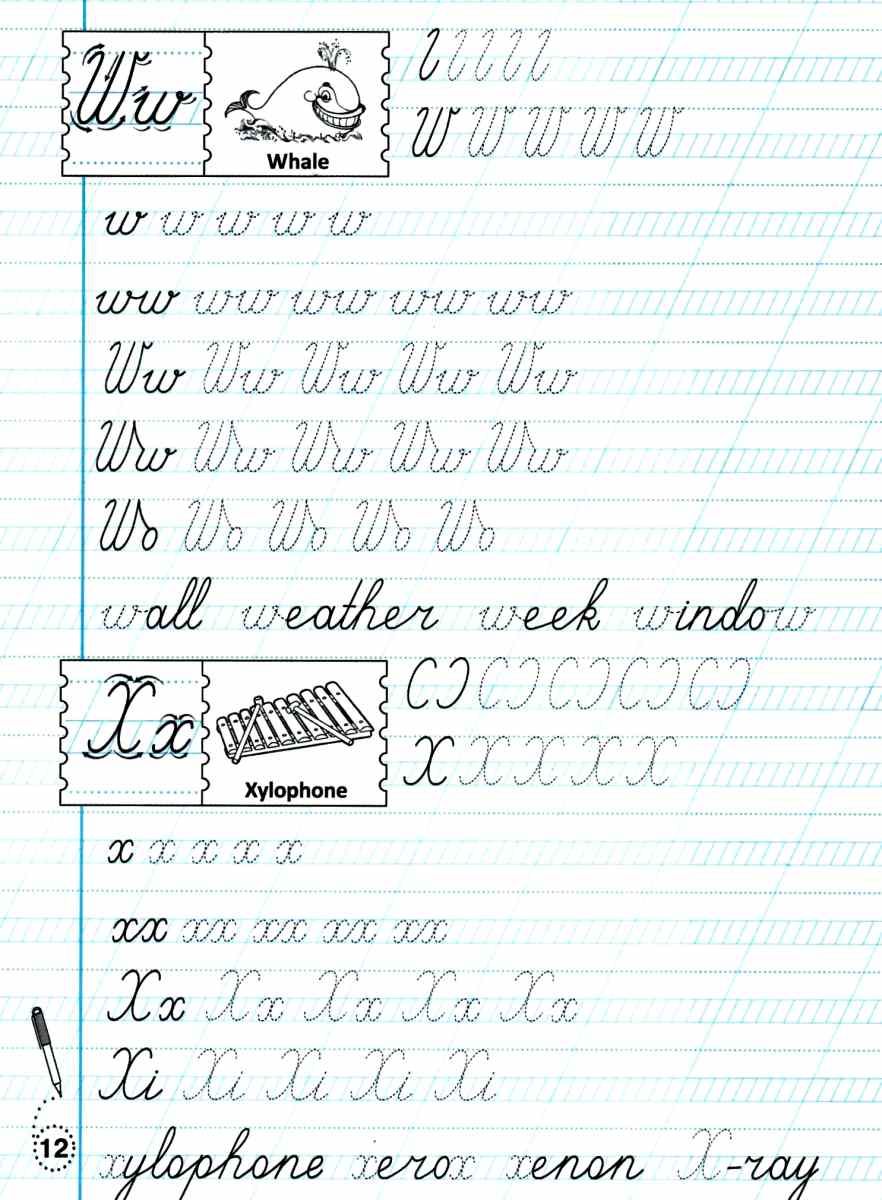 Ww
Whale
W W W W W
w w w w w
ww ww ww ww ww
Ww Ww Ww Ww Ww
Ww Ww Ww Ww Ww
Wo Wo Wo Wo Wo
wall weather week window
Xx
Xylophone
X X X X X
x x x x x
xx xx xx xx xx
Xx Xx Xx Xx Xx
Xi Xi Xi Xi Xi
12
xylophone xerox xenon X-ray